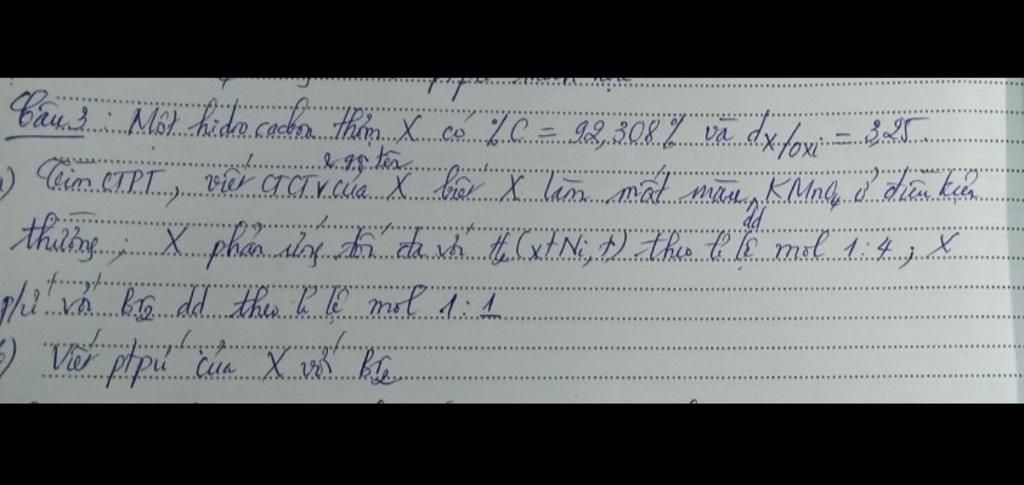 Câu 3: Một hidrocacbon thơm X có %C = 92,308% và dX/oxi = 3,25.
a) Tìm CTPT, viết CTCT và gọi tên của X biết X làm mất màu dd KMnO4 ở điều kiện
thường; X phản ứng tối đa với H2 (xt Ni, t) theo tỉ lệ mol 1:4; X
p/ứ với Br2 dd theo tỉ lệ mol 1:1
b) Viết ptpứ của X với Br2